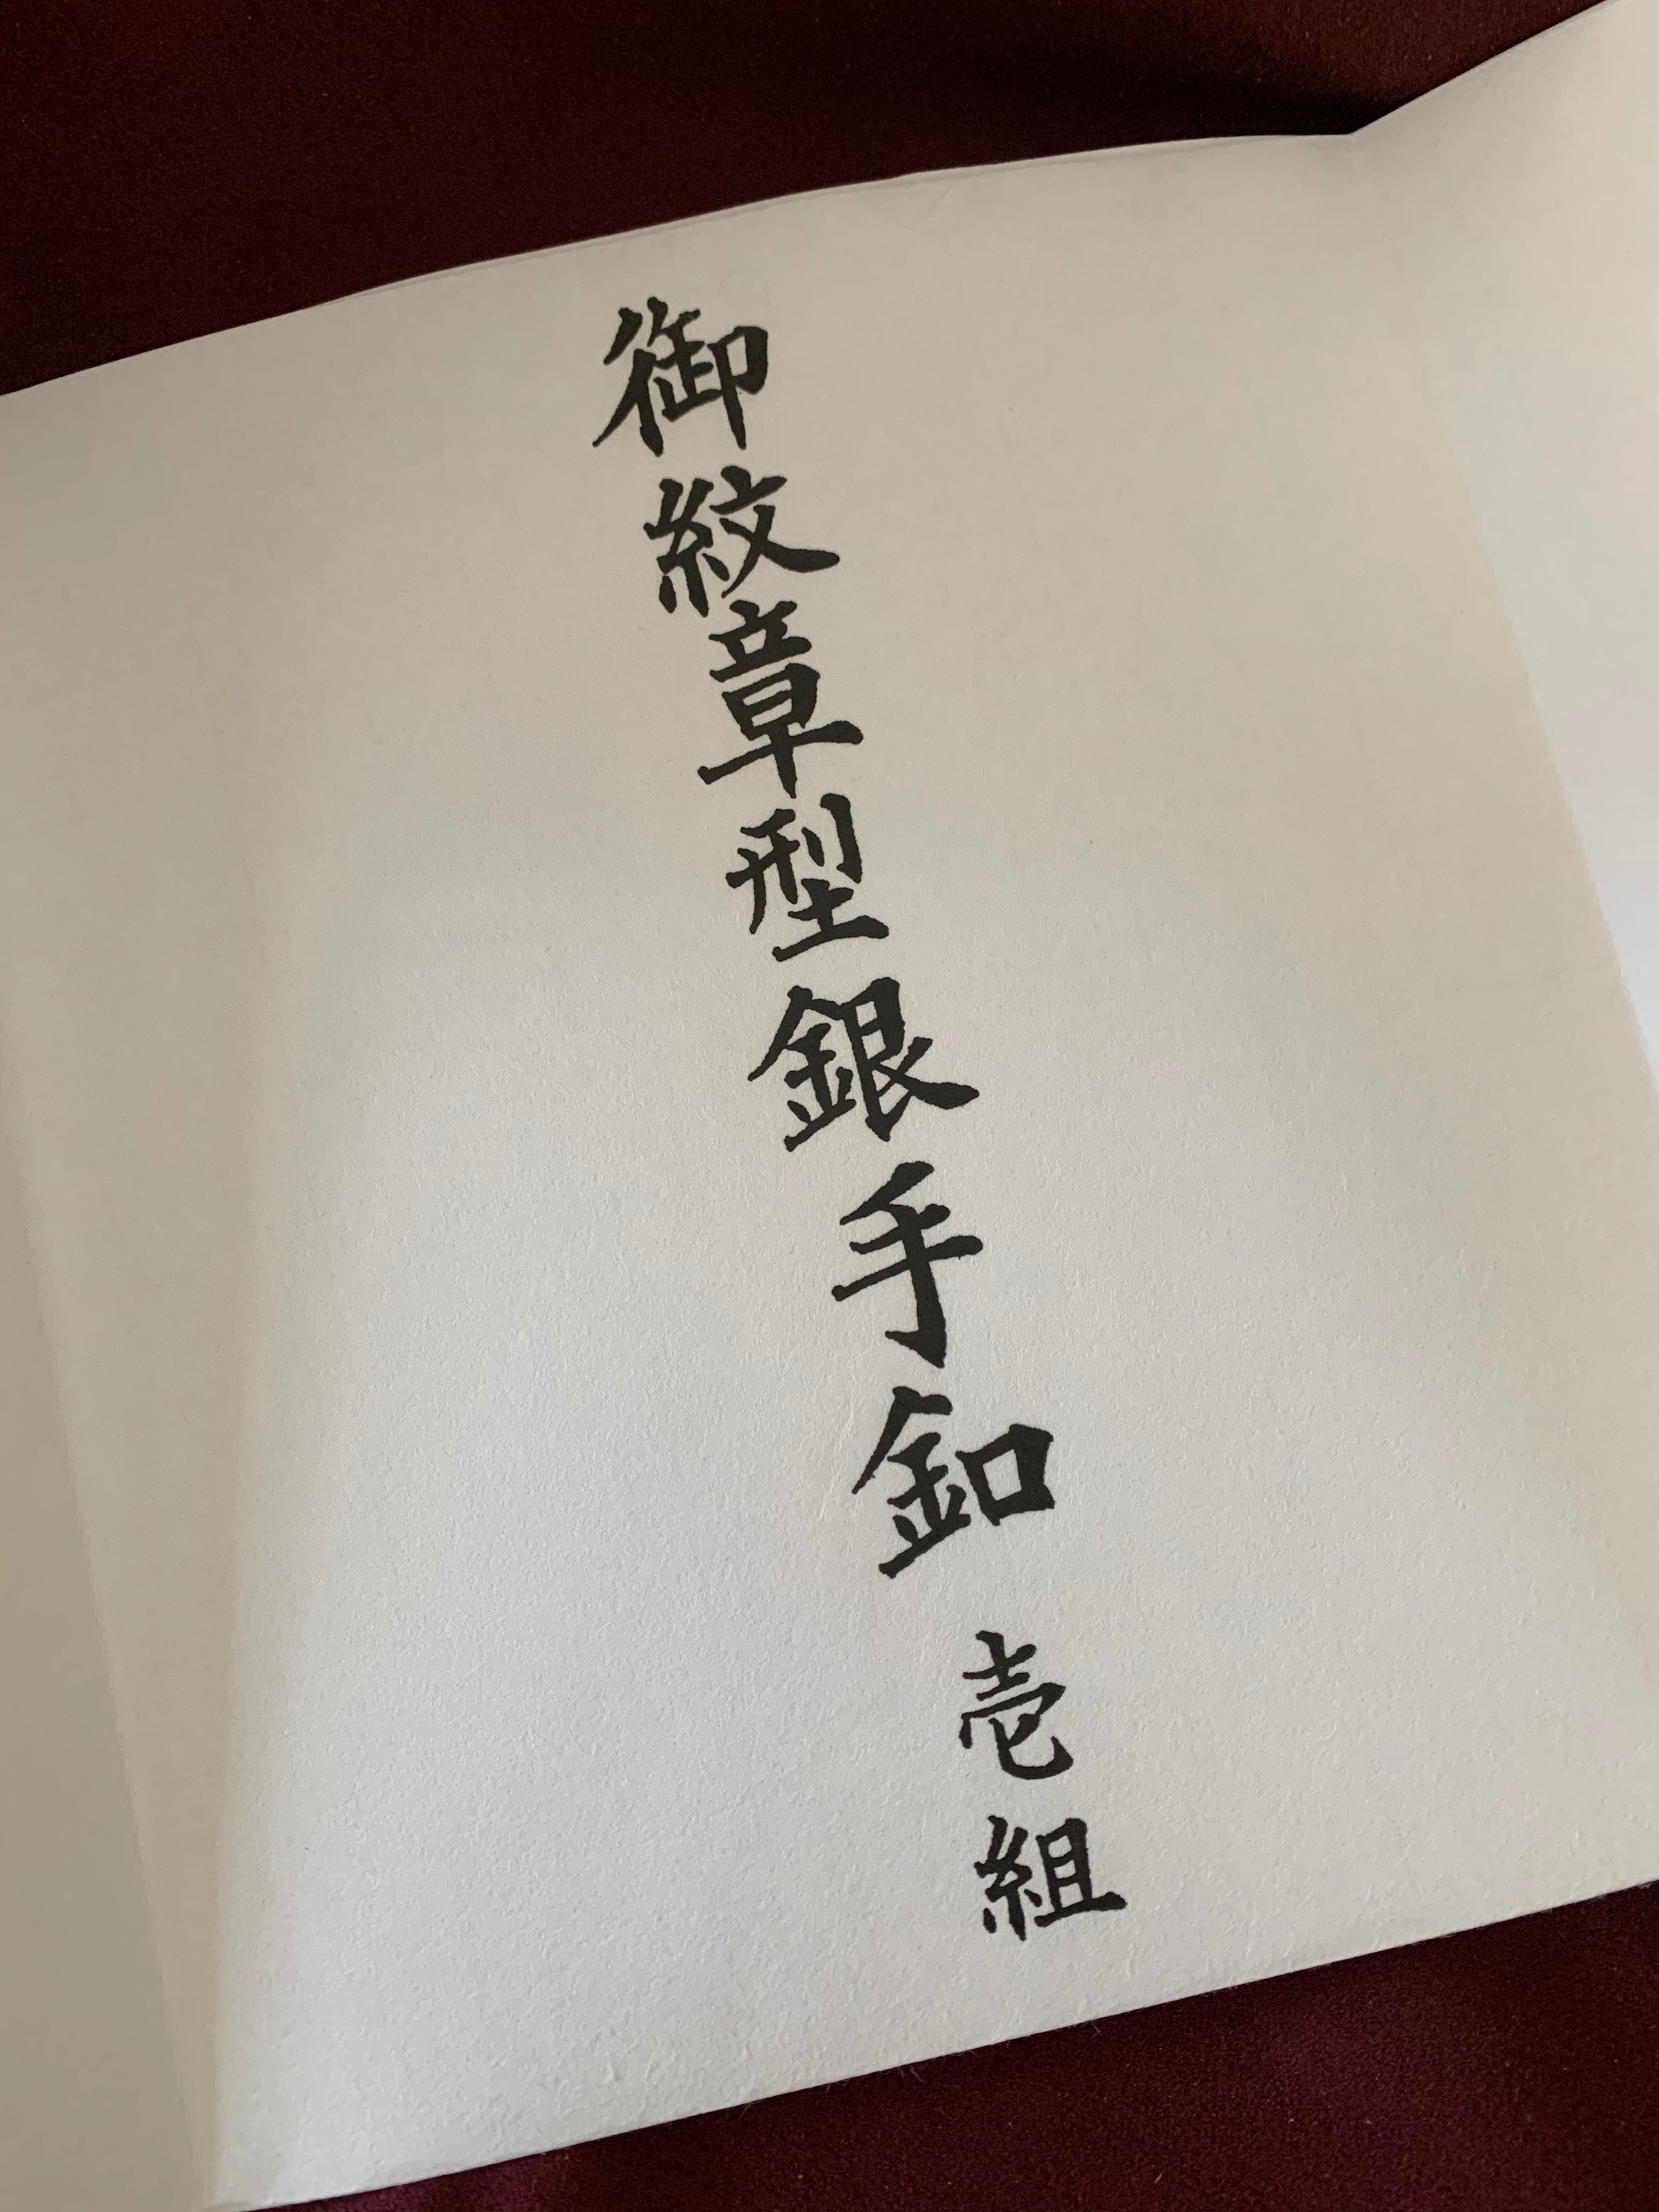 御紋章型銀手釦 壱組